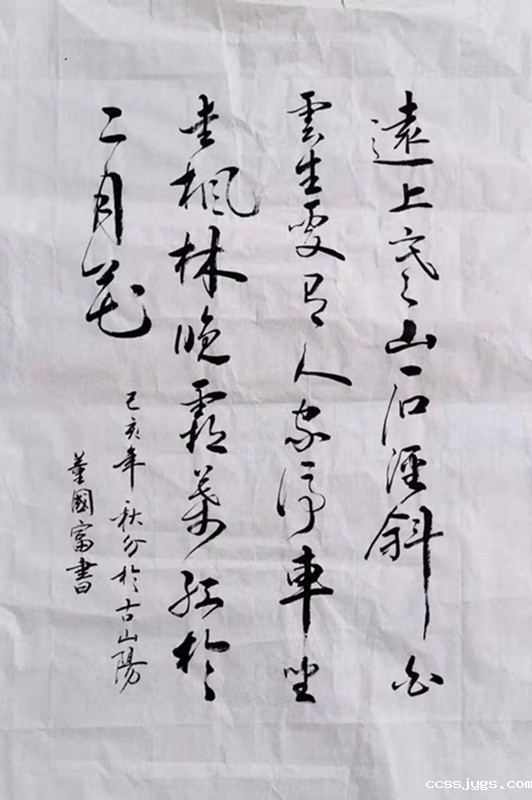 遠上寒山石徑斜白
雲生處有人家停車坐
愛楓林晚霜葉紅於
二月花
己亥年秋分於古山陽
董國富書
ccssjygs.com